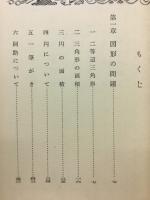 もくじ
第一章 図形の問題
一 二等辺三角形
二 三角形の面積
三 円の面積
四 円について
五 一筆がき
六 回路について